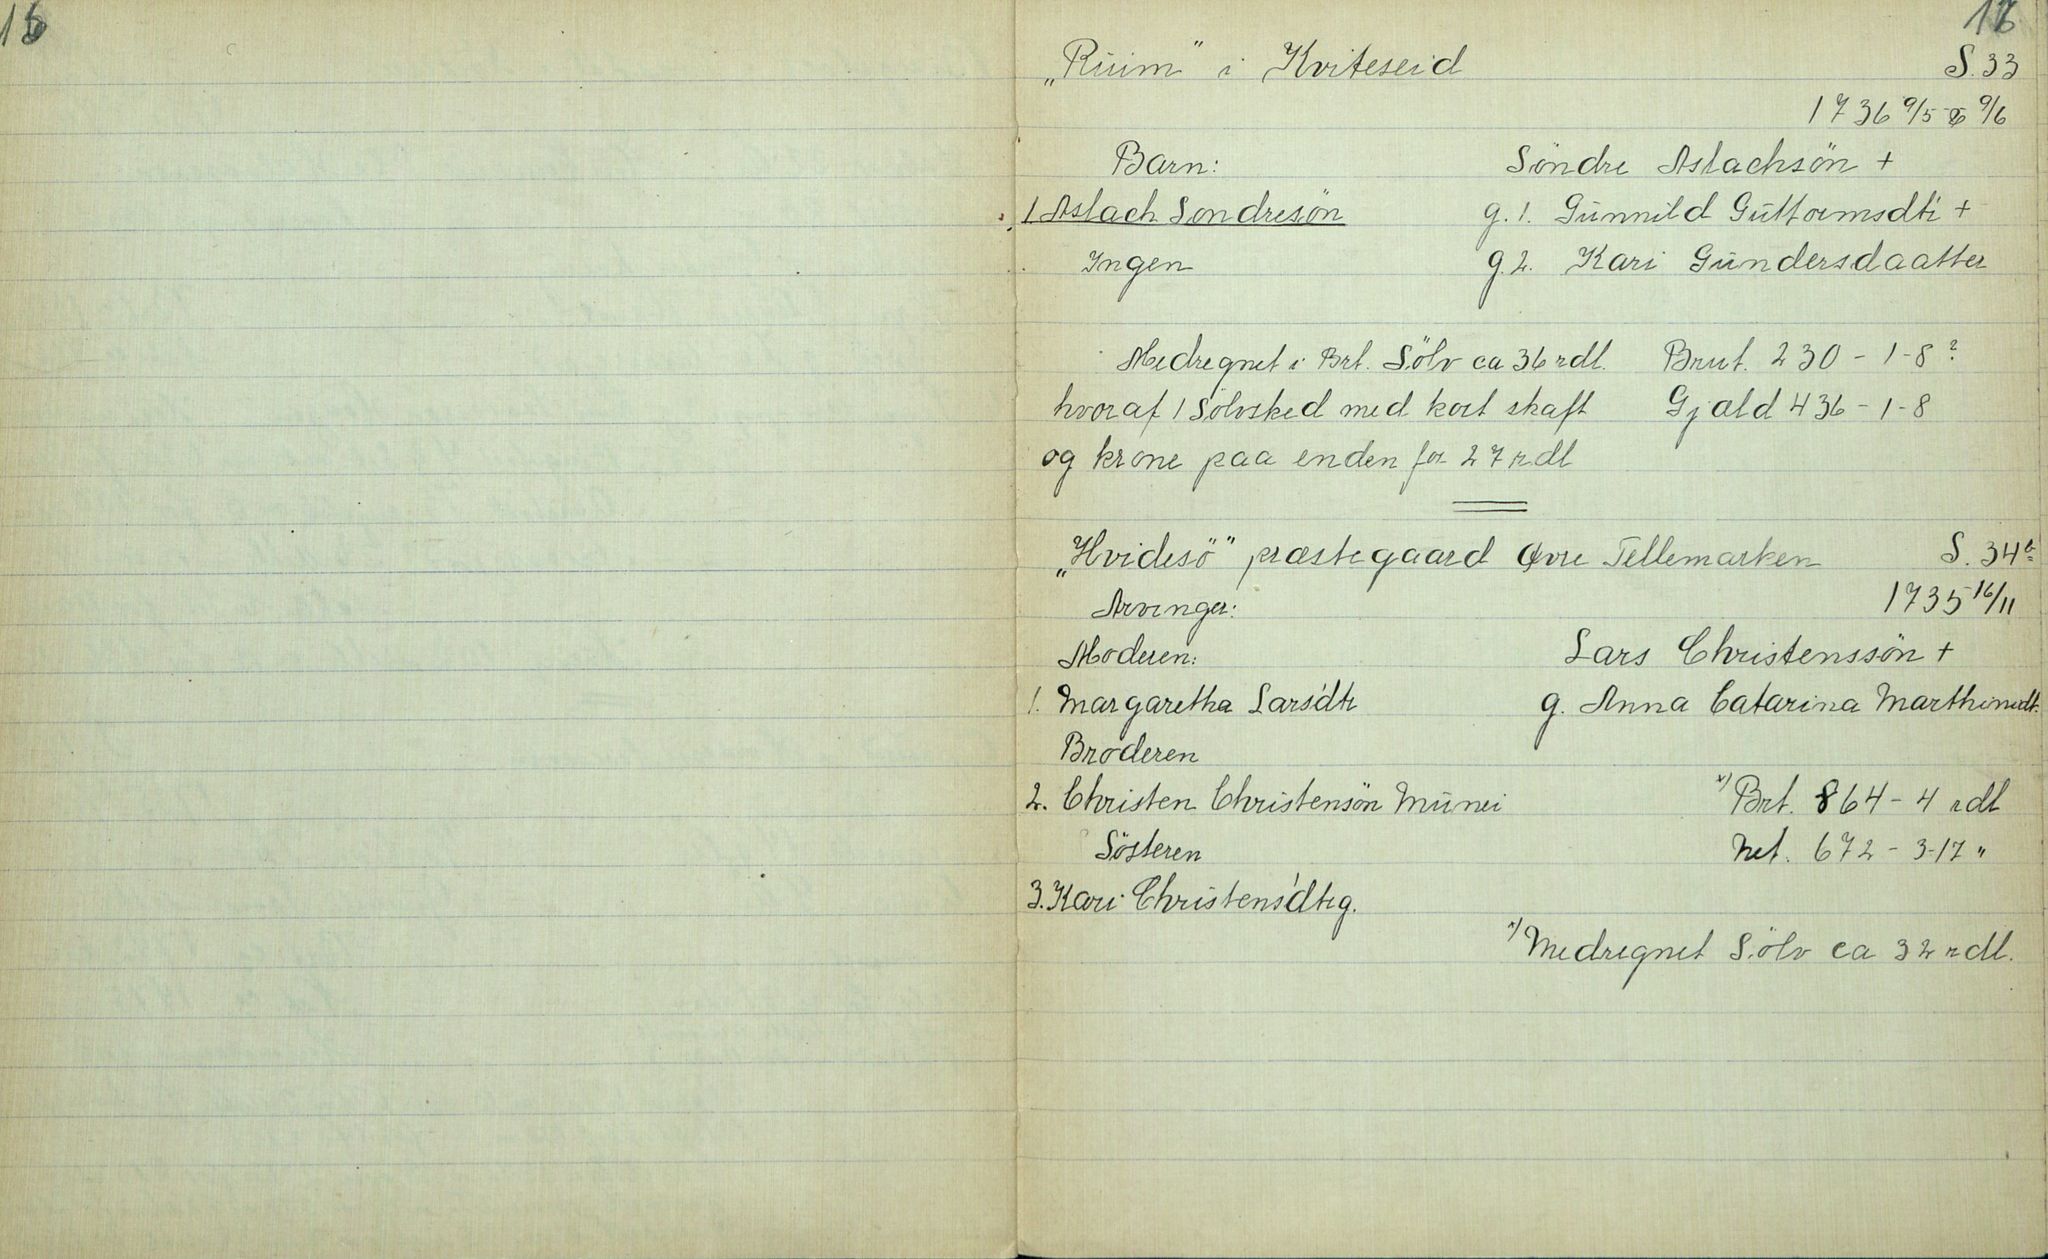 „Ruim" i Kviteseid S. 33
1736 9/5 & 9/6
Barn: Söndre Aslachsön +
1 Aslach Sondresön g. 1. Gunnild Guttormsdtr +
Ingen g. 2. Kari Gundersdaatter
Medregnet i Brt. Sölv ca 36 rdl. Brut. 230 - 1 - 8 ?
hvoraf 1 Sölvsked med kort skaft Gjæld 436 - 1 - 8
og krone paa enden for 27 rdl
„Hvidesö" præstegaard Øvre Tellemarken S. 34b
Arvinger: 1735 16/11
Moderen: Lars Christenssön +
1. Margaretha Lars'dtr g. Anna Catarina Marthinsdt.
Broderen
2. Christen Christensön Munei x) Brt. 864 - 4 rdl
Sösteren Net. 672 - 3-17 "
3. Kari Christens'dtr g.
x) Medregnet Sölv ca 32 rdl.